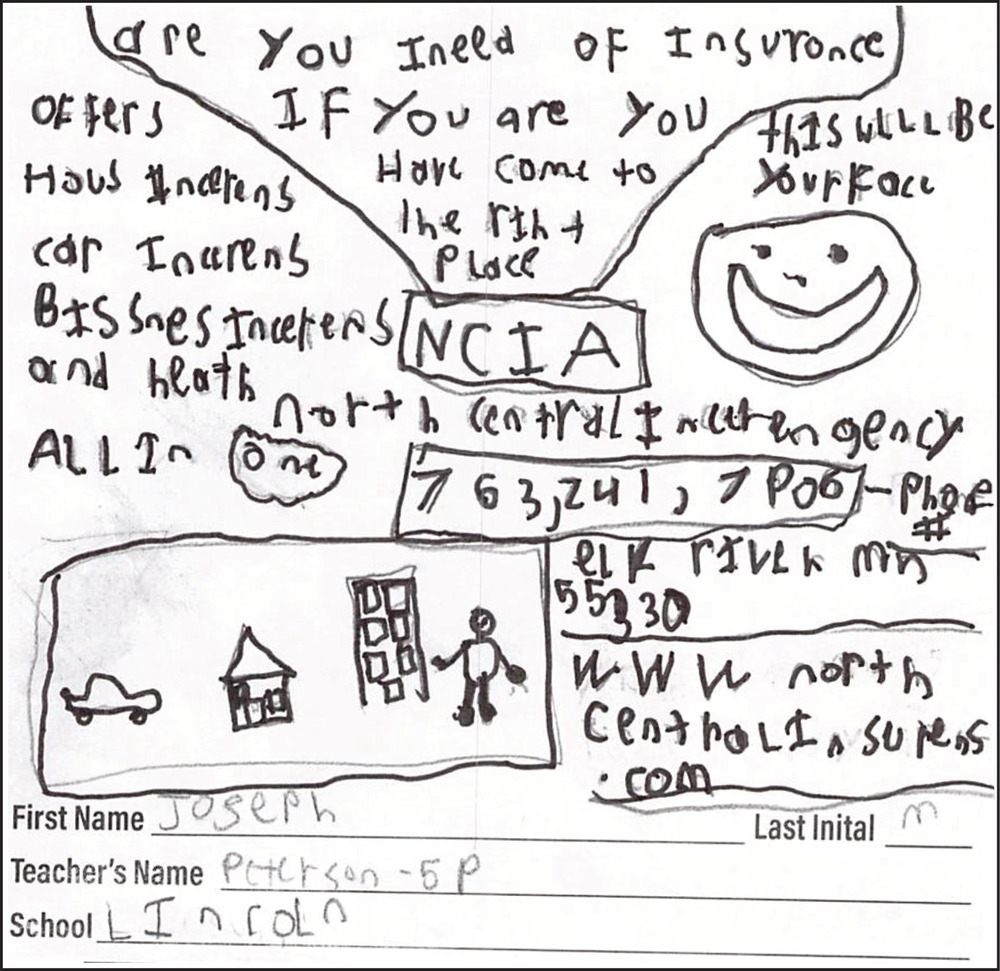 are You Ineed OF Insuronce
IF You are You
Have come to
the rIht
PLace
OFFers
Hous Incerens
car Incerens
BIssnes Incerens
and heath
ALL In One
thIS wILL Be
Your Face
NCIA
north central Incuren gency
763,241, 7P06 - Phone
#
eLK rIVer mn
55330
WWW north
centraLInsurens
.com
First Name Joseph
Last Inital m
Teacher's Name Peterson - 5P
School LIncoLn